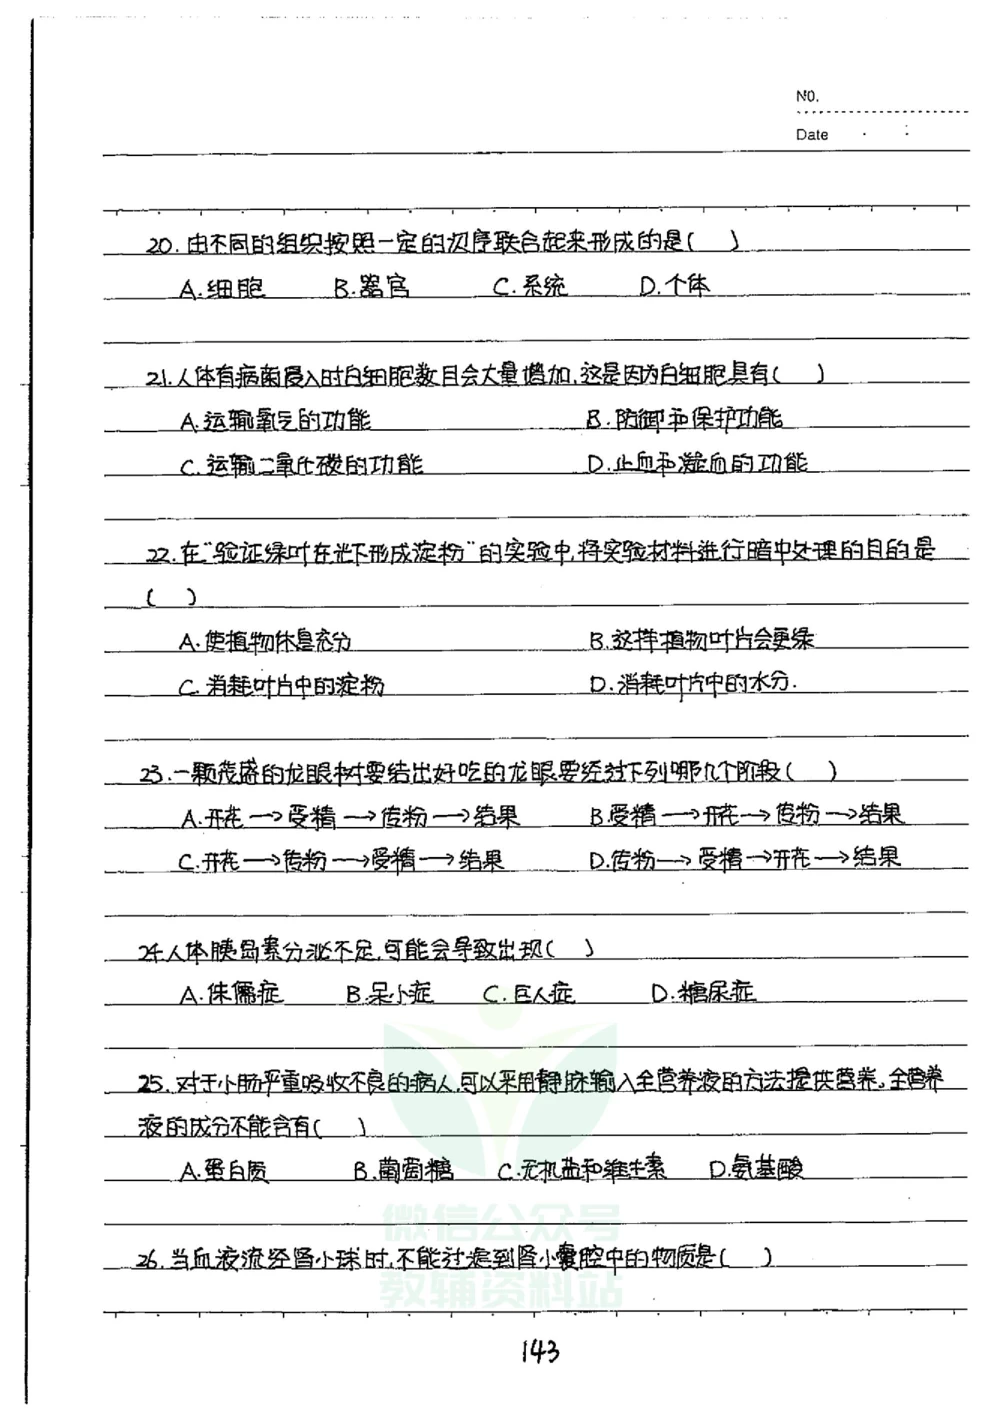 NO.
Date
20.由不同的组织按照一定的次序联合起来形成的是( )
A.细胞 B.器官 C.系统 D.个体
21.人体有病菌侵入时白细胞数目会大量增加,这是因为白细胞具有( )
A.运输氧气的功能 B.防御和保护功能
C.运输二氧化碳的功能 D.止血和凝血的功能
22.在“验证绿叶在光下形成淀粉”的实验中,将实验材料进行暗中处理的目的是
( )
A.使植物休息充分 B.这样植物叶片会更绿
C.消耗叶片中的淀粉 D.消耗叶片中的水分.
23.一颗茂盛的龙眼树要结出好吃的龙眼要经过下列哪几个阶段( )
A.开花→受精→传粉→结果 B.受精→开花→传粉→结果
C.开花→传粉→受精→结果 D.传粉→受精→开花→结果
24.人体胰岛素分泌不足,可能会导致出现( )
A.侏儒症 B.呆小症 C.巨人症 D.糖尿症
25.对于小肠严重吸收不良的病人,可以采用静脉输入全营养液的方法提供营养。全营养
液的成分不能含有( )
A.蛋白质 B.葡萄糖 C.无机盐和维生素 D.氨基酸
微信公众号
26.当血液流经肾小球时,不能过滤到肾小囊腔中的物质是( )
教辅资料站
143